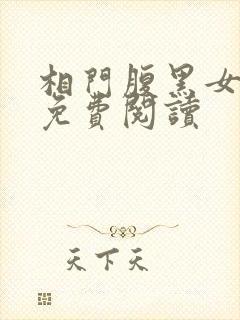 相門腹黑女
免費閱讀
天下天